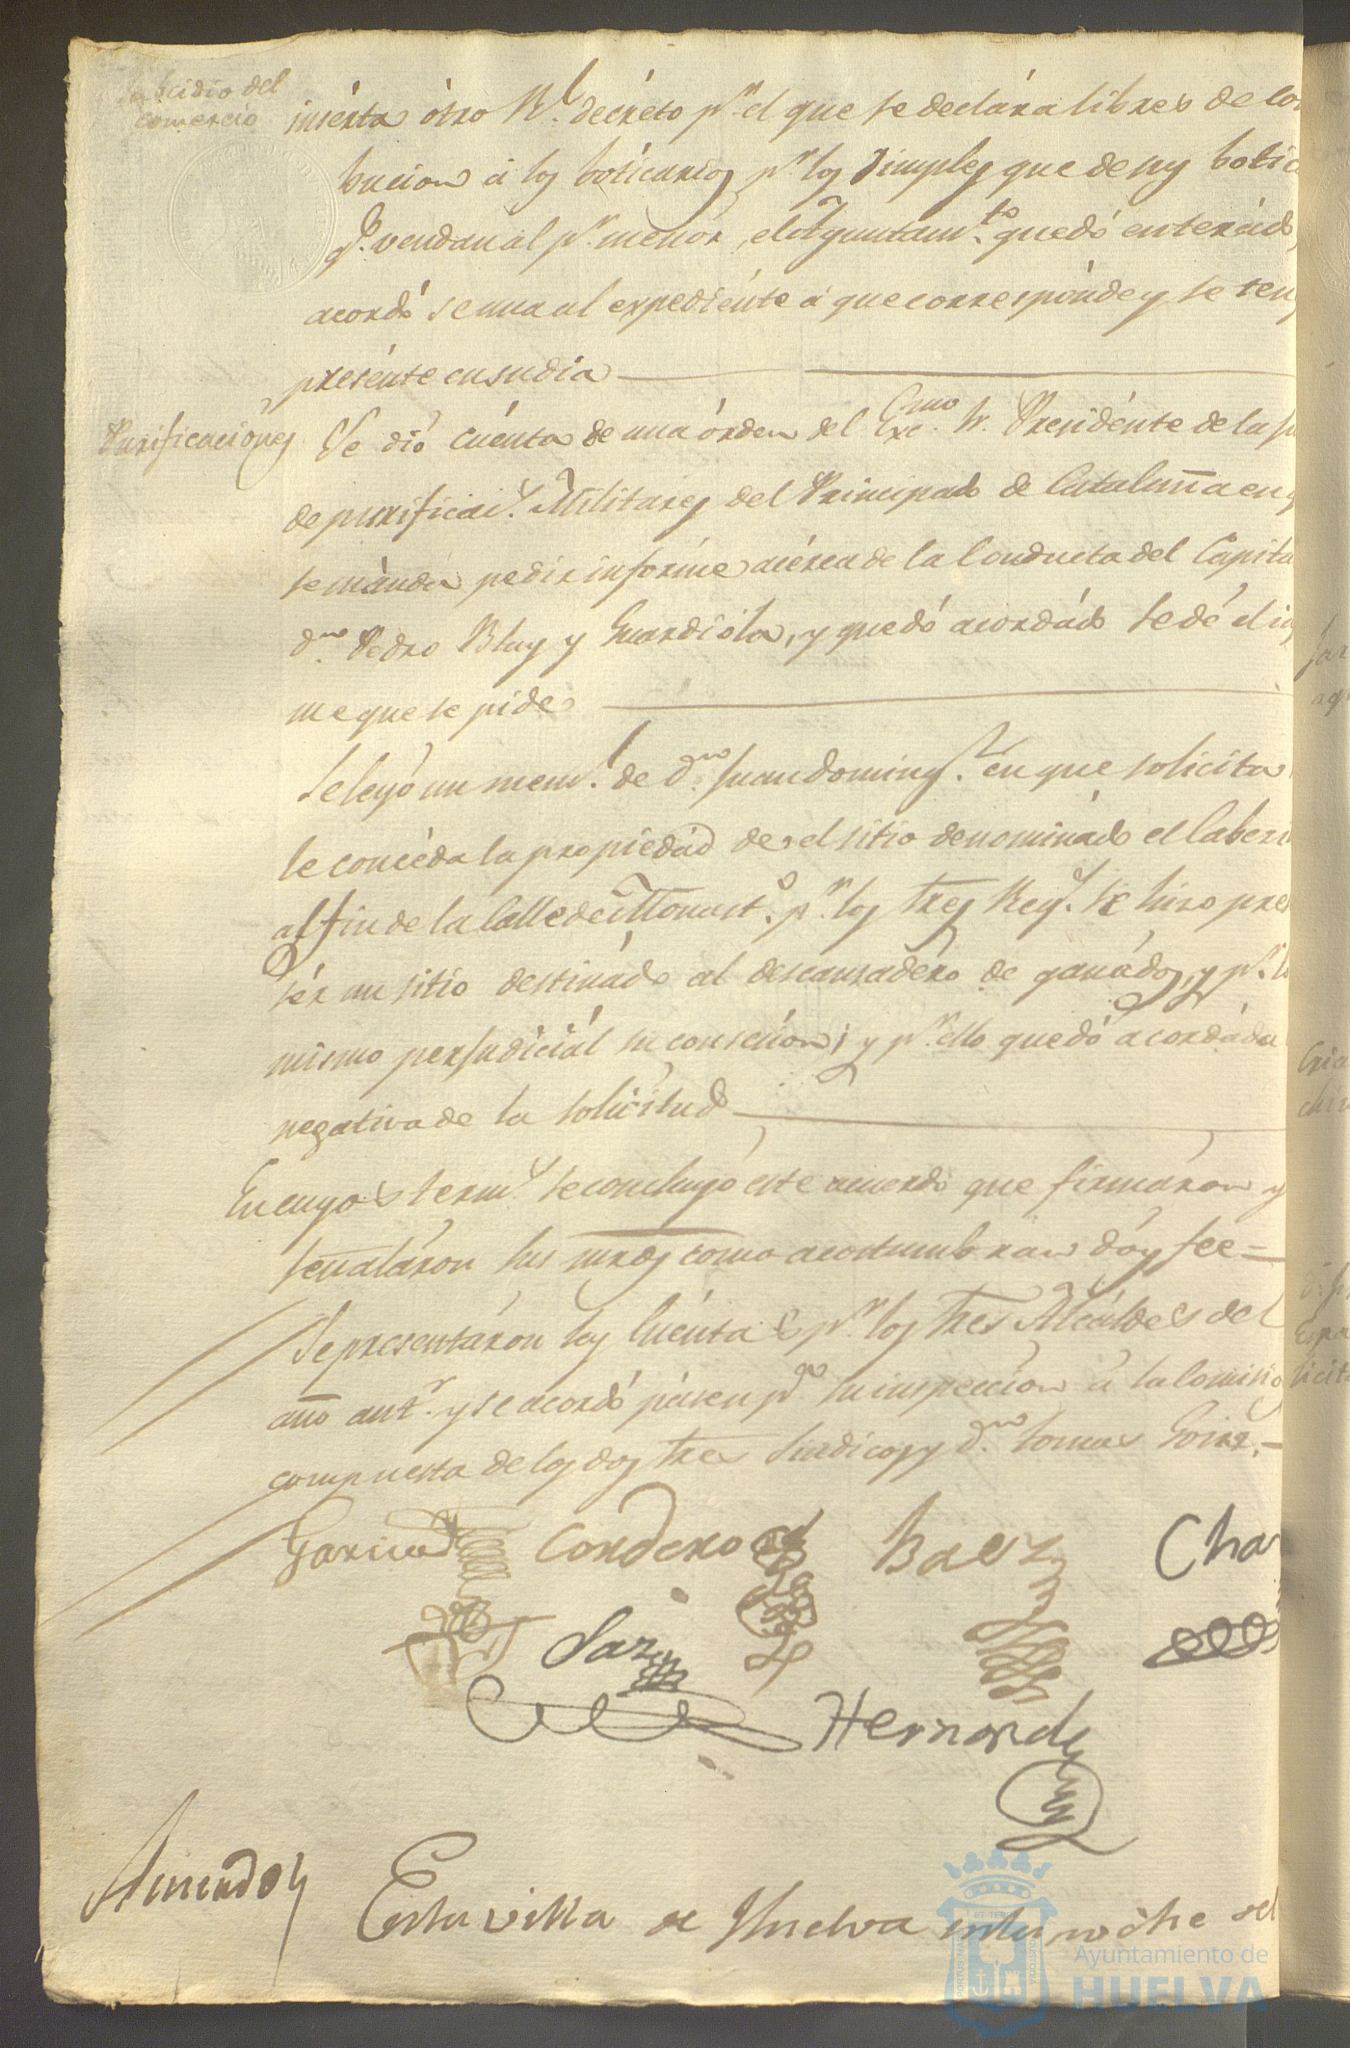 Subcidio del
comercio
insérta ótro Rl. decréto pr. el que se declára libres de co
bucion á los boticarios pr. los simples que de sus botic
qe. vendan al pr. menór, el Ayuntamto. quedó enterádo,
acordó se una al expediénte á que correspónde y se ten
presénte en su dia
Purificaciónes
Se dió cuénta de una órden del Exmo. Sr. Presidénte de la
de purificais. Militares del Principado de Cataluña en
se mánda pedir infórme acérca de la Conducta del Capita
dn. Pedro Bluy y Guardióla, y quedó acordádo se dé el
me que se pide
Se leyó un meml. de dn. Juan Doming.z en que solicita
se concéda la propiedád de el sitio denomínado el Laberi
al fin de la Calle de Monast.o pr. los tres Rey.s se hiso pre
sér un sitio destinádo al descansadéro de ganádos, y pr. lo
mismo perjudiciál su concecion; y pr. ello quedó acordáda
negativa de la solicitud
En cuyos term.s se concluyó este acuerdo que firmáron y
señaláron sus mrds como acostumbran doy fee=
Se presentáron las Cuéntas pr. los tres Alcáldes del
año antr. y se acordó pásen pa. su inspeccion á la Comisio
compuesta de los dos tres Sindicos y dn. Tomas
Garcia
Cordero
Baez
Cha
Saz
Hernand
Acuerdo
En la villa de Huelva en la noche del
Ayuntamiento de
HUELVA